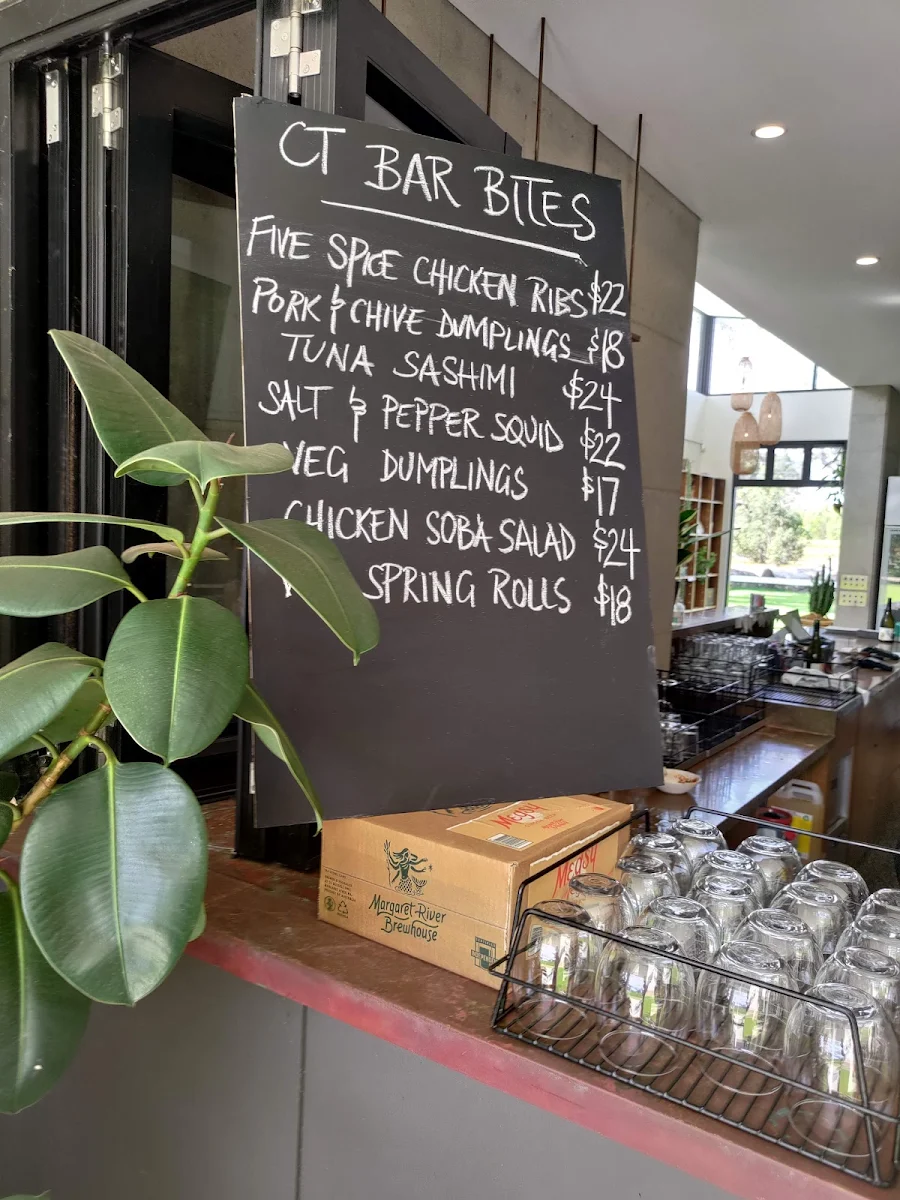 CT BAR BITES
FIVE SPICE CHICKEN RIBS $22
PORK & CHIVE DUMPLINGS $18
TUNA SASHIMI $24
SALT & PEPPER SQUID $22
VEG DUMPLINGS $17
CHICKEN SOBA SALAD $24
SPRING ROLLS $18
Margaret River
Brewhouse